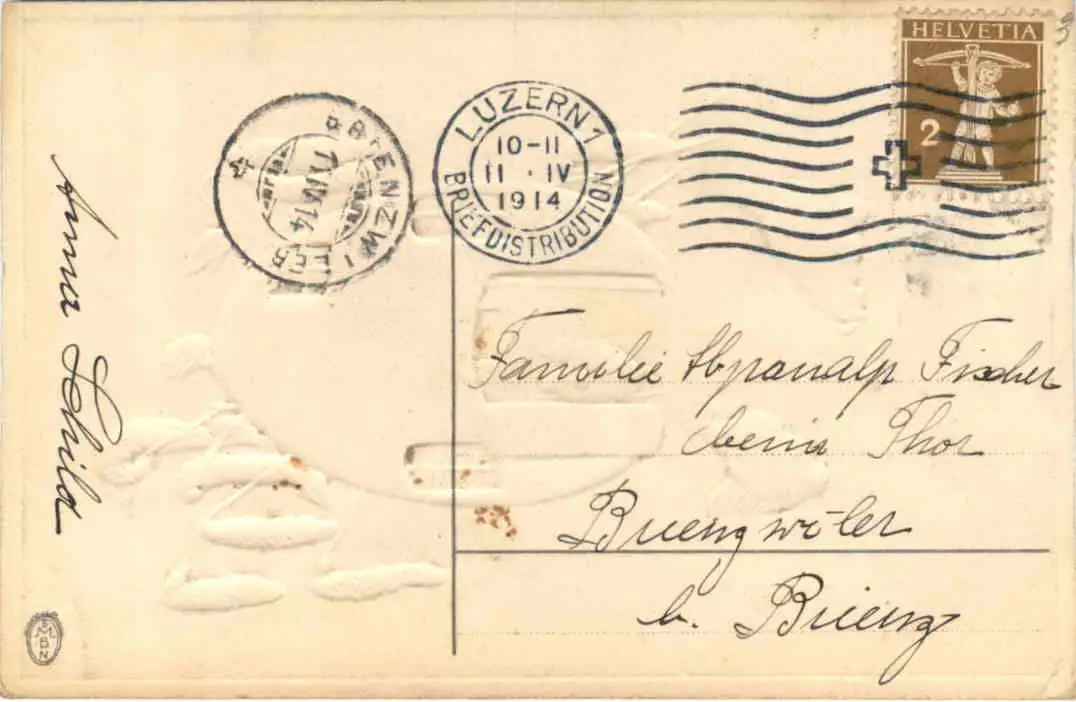 HELVETIA
2
LUZERN 1
10-11
11 · IV
1914
BRIEFDISTRIBUTION
BRIENZWILER
11 IV 14
Anna Schild
Familie Abplanalp Fischer
beim Thor
Brienzwiler
b. Brienz